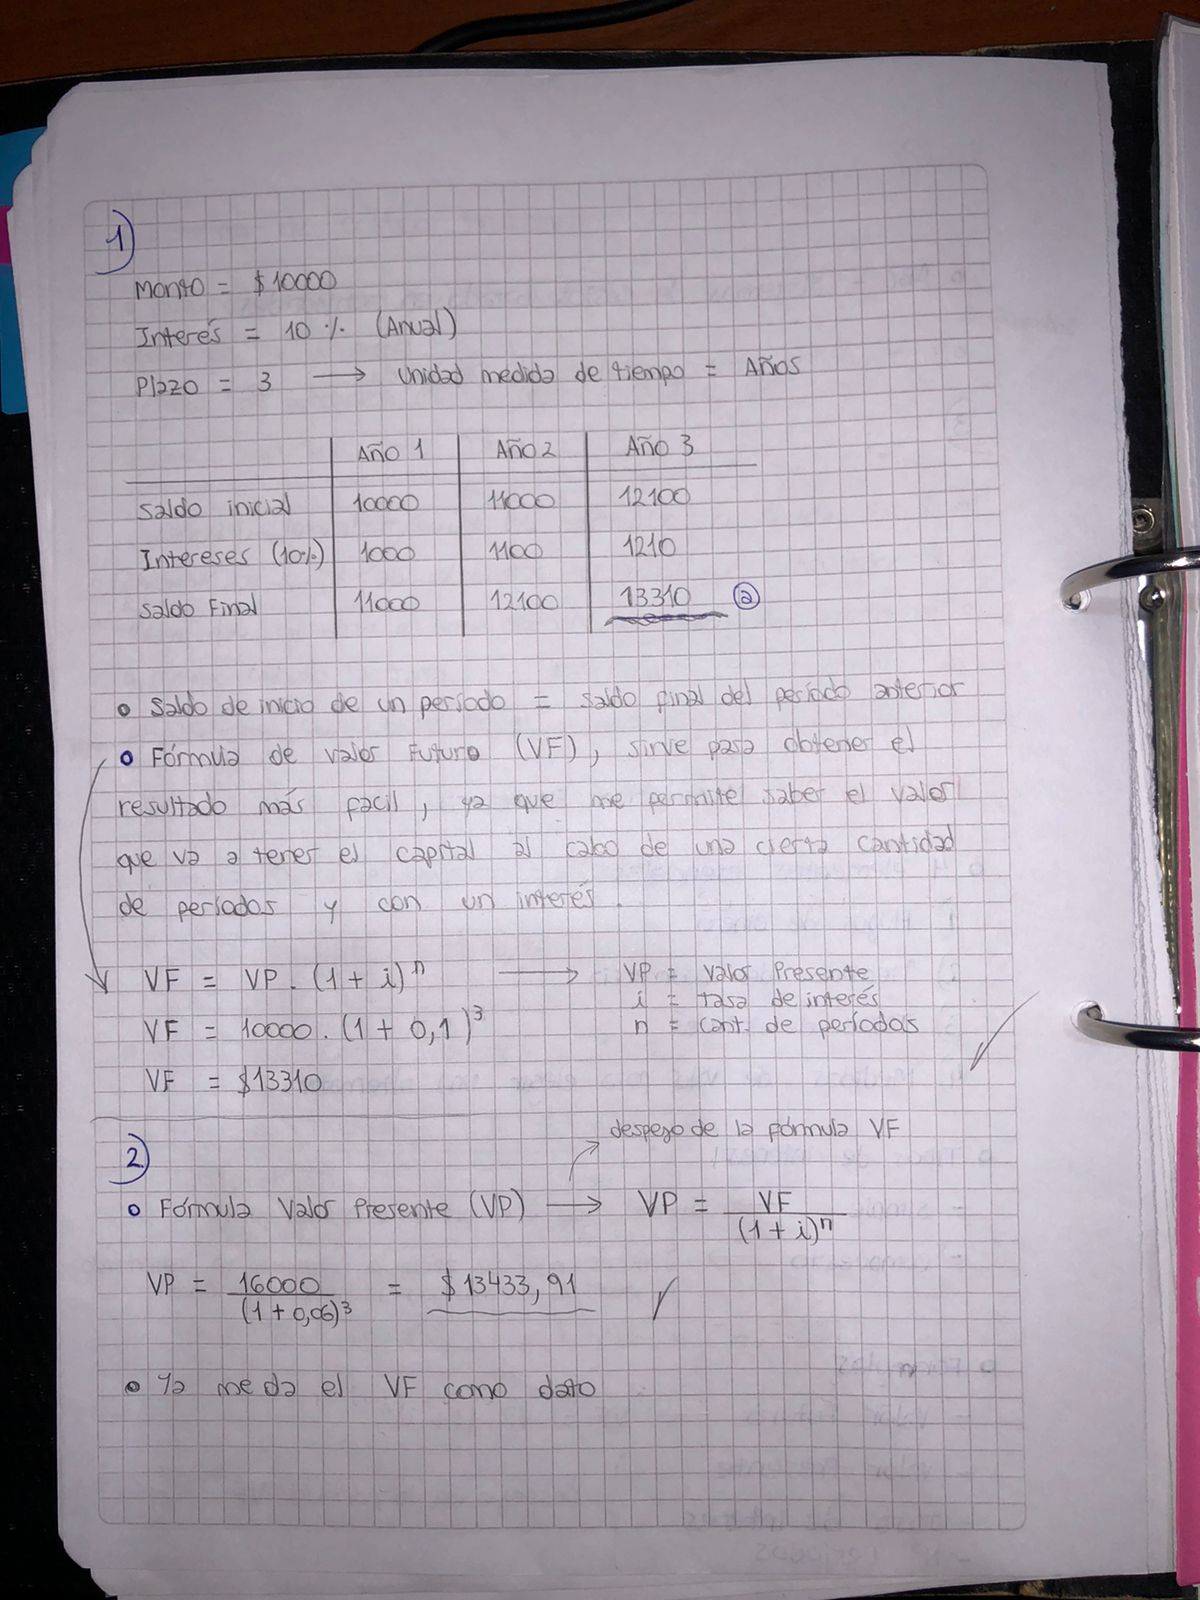 1)
Monto = $10000
Interés = 10 % (Anual)
Plazo = 3 → Unidad medida de tiempo = Años
Año 1 Año 2 Año 3
Saldo inicial 10000 11000 12100
Intereses (10%) 1000 1100 1210
Saldo Final 11000 12100 13310 a
• Saldo de inicio de un período = Saldo final del período anterior
• Fórmula de valor Futuro (VF), sirve para obtener el
resultado más facil, ya que me permite saber el valor
que va a tener el capital al cabo de una cierta cantidad
de períodos y con un interés.
VF = VP . (1 + i)^n → VP = Valor Presente
i = tasa de interés
VF = 10000 . (1 + 0,1)^3 n = cant. de períodos
VF = $13310
despejo de la fórmula VF
2)
• Fórmula Valor Presente (VP) → VP = VF / (1 + i)^n
VP = 16000 / (1 + 0,06)^3 = $13433,91
• Ya me da el VF como dato